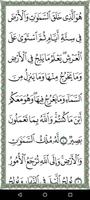 هُوَ ٱلَّذِي خَلَقَ ٱلسَّمَٰوَٰتِ وَٱلۡأَرۡضَ
فِي سِتَّةِ أَيَّامٖ ثُمَّ ٱسۡتَوَىٰ عَلَى
ٱلۡعَرۡشِۖ يَعۡلَمُ مَا يَلِجُ فِي ٱلۡأَرۡضِ
وَمَا يَخۡرُجُ مِنۡهَا وَمَا يَنزِلُ مِنَ
ٱلسَّمَآءِ وَمَا يَعۡرُجُ فِيهَاۖ وَهُوَ مَعَكُمۡ
أَيۡنَ مَا كُنتُمۡۚ وَٱللَّهُ بِمَا تَعۡمَلُونَ
بَصِيرٞ ٤ لَّهُۥ مُلۡكُ ٱلسَّمَٰوَٰتِ
وَٱلۡأَرۡضِۚ وَإِلَى ٱللَّهِ تُرۡجَعُ ٱلۡأُمُورُ